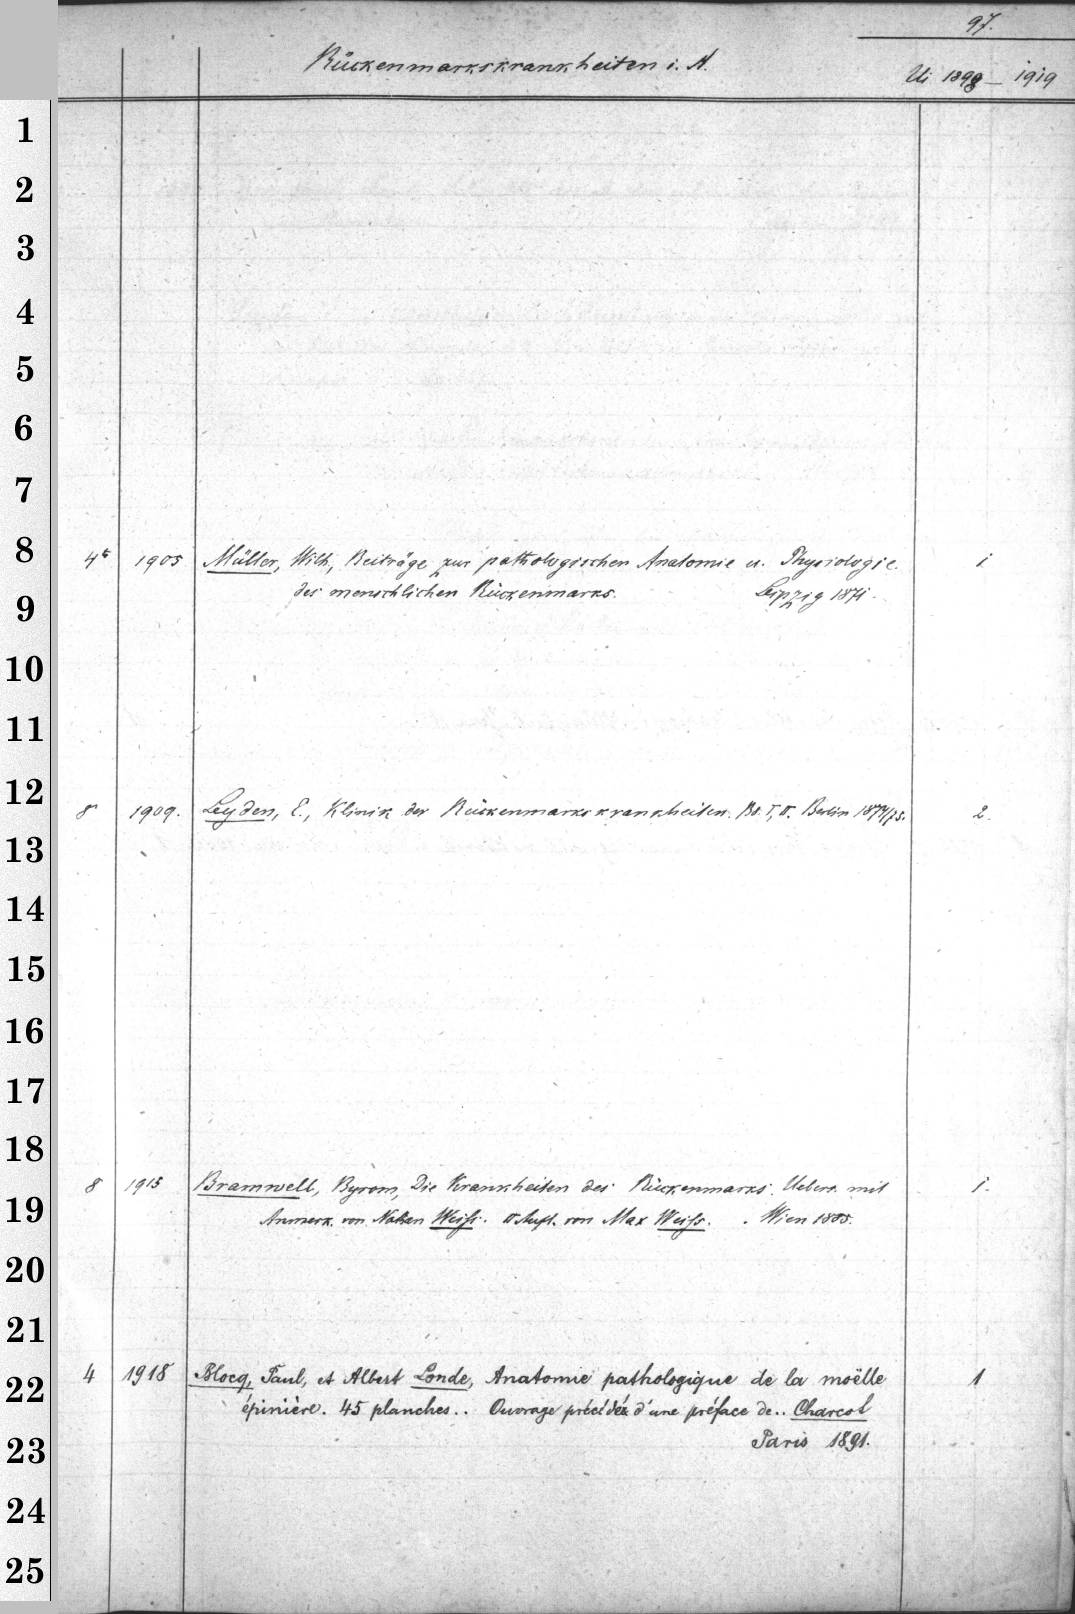 97.
Rückenmarkskrankheiten i. A.
Ui 1898 — 1919
1
2
3
4
5
6
7
8
4° 1905 Müller, Wilh., Beiträge zur pathologischen Anatomie u. Physiologie 1
des menschlichen Rückenmarks. Leipzig 1871.
9
10
11
12
8 1909. Leyden, E., Klinik der Rückenmarkskrankheiten. Bd. I, II. Berlin 1874/75. 2.
13
14
15
16
17
18
8 1915 Bramwell, Byrom, Die Krankheiten des Rückenmarks. Uebers. mit 1.
19
Anmerk. von Nathan Weiss. II Aufl. von Max Weiss. Wien 1885.
20
21
4 1918 Blocq, Paul, et Albert Londe, Anatomie pathologique de la moëlle 1
22
épinière. 45 planches.. Ouvrage précédé d'une préface de.. Charcot
Paris 1891.
23
24
25